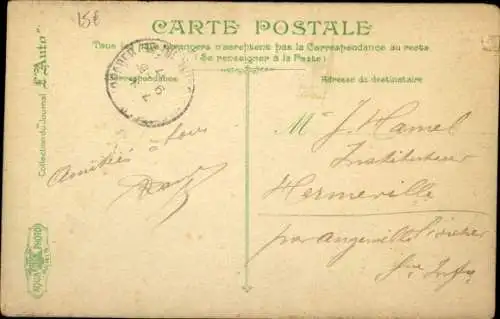 15€
CARTE POSTALE
Tous les pays étrangers n'acceptent pas la Correspondance au recto
(Se renseigner à la Poste)
Correspondance
Adresse du destinataire
Collection du Journal "L'Auto"
AQUA PHOTO
PARIS
Amitiés à tous
Mr J. Hamel
Instituteur
Hermeville
par Angerville l'orcher
Sne Infre